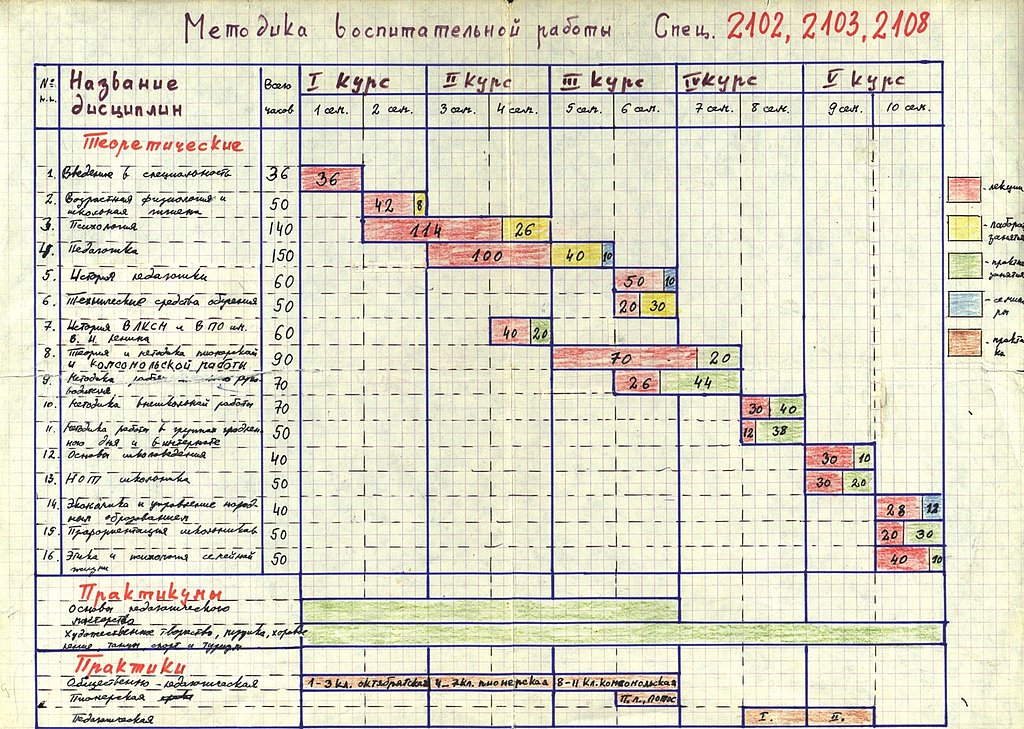 Методика воспитательной работы Спец. 2102, 2103, 2108
№ п.п. Название дисциплин Всего часов I Курс II Курс III Курс IV Курс V Курс
1 сем. 2 сем. 3 сем. 4 сем. 5 сем. 6 сем. 7 сем. 8 сем. 9 сем. 10 сем.
Теоретические
1. Введение в специальность 36 36
2. Возрастная физиология и
школьная гигиена 50 42 8
3. Психология 140 114 26
4. Педагогика 150 100 40 10
5. История педагогики 60 50 10
6. Технические средства обучения 50 20 30
7. История ВЛКСМ и ВПО им.
В. И. Ленина 60 40 20
8. Теория и методика пионерской
и комсомольской работы 90 70 20
9. Методика 70 26 44
10. Методика внешкольной работы 70 30 40
11. Методика работы в группах продлен-
ного дня и в интернате 50 12 38
12. Основы школоведения 40 30 10
13. НОТ школьника 50 30 20
14. Экономика и управление народ-
ным образованием 40 28 12
15. Профориентация школьников 50 20 30
16. Этика и психология семейной
жизни 50 40 10
Практикумы
Основы педагогического
мастерства
Художественное творчество, музыка, хорове
дение, танцы спорт и туризм
Практики
Общественно-педагогическая 1-3 кл. октябрятская 4-7 кл. пионерская 8-11 Кл. комсомольская
Пионерская П.л.,
Педагогическая I. II.
- лекции
- лабора
занятия
- практи
занятия
- семина
ры
- практи
ка